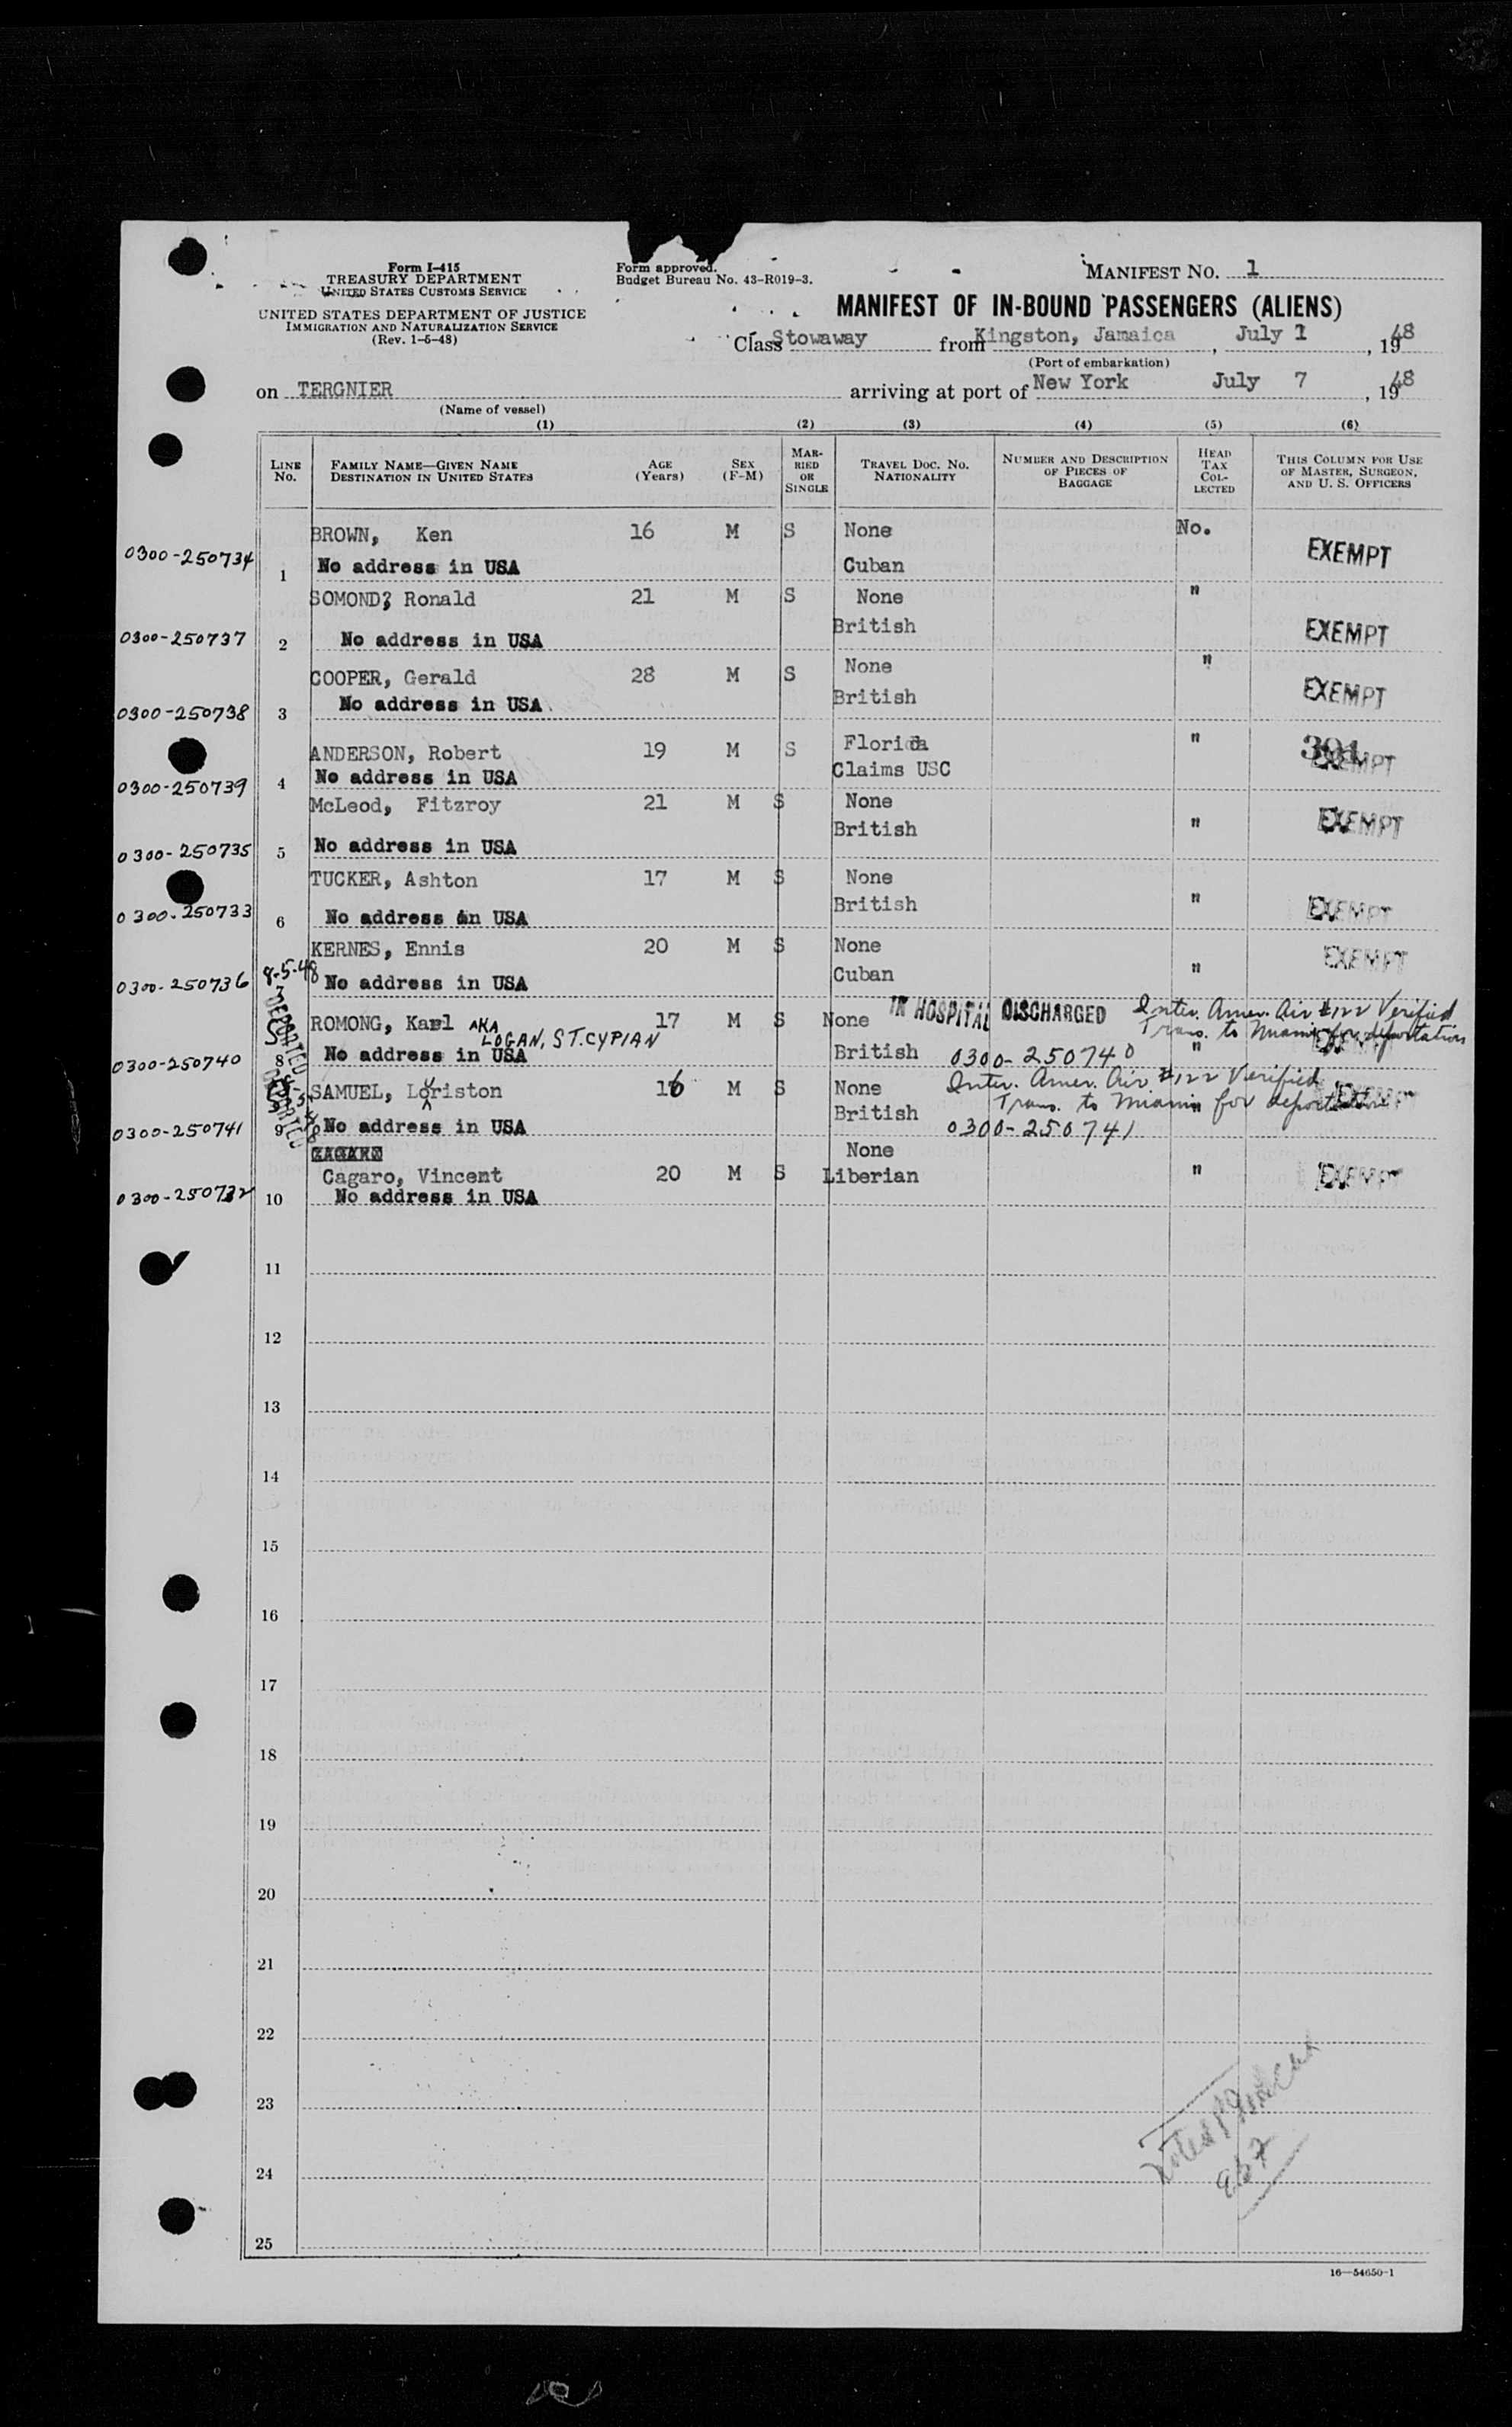 Form I-415
TREASURY DEPARTMENT
UNITED STATES CUSTOMS SERVICE
UNITED STATES DEPARTMENT OF JUSTICE
IMMIGRATION AND NATURALIZATION SERVICE
(Rev. 1-5-48)
Form approved.
Budget Bureau No. 43-R019-3.
MANIFEST NO. 1
MANIFEST OF IN-BOUND PASSENGERS (ALIENS)
Class Stowaway from Kingston, Jamaica, July 1, 1948
(Port of embarkation)
on TERGNIER arriving at port of New York July 7, 1948
(Name of vessel)
(1) (2) (3) (4) (5) (6)
LINE No. FAMILY NAME—GIVEN NAME DESTINATION IN UNITED STATES AGE (Years) SEX (F-M) MARRIED OR SINGLE TRAVEL DOC. NO. NATIONALITY NUMBER AND DESCRIPTION OF PIECES OF BAGGAGE HEAD TAX COLLECTED THIS COLUMN FOR USE OF MASTER, SURGEON, AND U. S. OFFICERS
BROWN, Ken 16 M S None No.
0300-250734 1 No address in USA Cuban EXEMPT
SOMOND, Ronald 21 M S None "
0300-250737 2 No address in USA British EXEMPT
COOPER, Gerald 28 M S None "
0300-250738 3 No address in USA British EXEMPT
ANDERSON, Robert 19 M S Florida " 391
0300-250739 4 No address in USA Claims USC EXEMPT
McLeod, Fitzroy 21 M S None
0300-250735 5 No address in USA British " EXEMPT
TUCKER, Ashton 17 M S None
0300-250733 6 No address in USA British " EXEMPT
KERNES, Ennis 20 M S None EXEMPT
0300-250736 8-5-48 7 No address in USA Cuban "
DEPORTED
ROMONG, Karl AKA LOGAN, ST.CYPIAN 17 M S None IN HOSPITAL DISCHARGED Inter. Amer. Air #122 Verified
Trans. to Miami for deportation
0300-250740 8 No address in USA British 0300-250740 " EXEMPT
DEPORTED
SAMUEL, Loriston 16 M S None Inter. Amer. Air #122 Verified EXEMPT
Trans. to Miami for deportation
0300-250741 9 No address in USA British 0300-250741
None
Cagaro, Vincent 20 M S Liberian " EXEMPT
0300-250732 10 No address in USA
11
12
13
14
15
16
17
18
19
20
21
22
23
24
25
967
16—54650-1